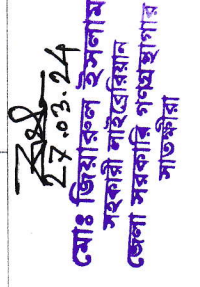 27.03.24
মোঃ জিয়ারুল ইসলাম
সহকারী লাইব্রেরিয়ান
জেলা সরকারি গণগ্রন্থাগার
সাতক্ষীরা